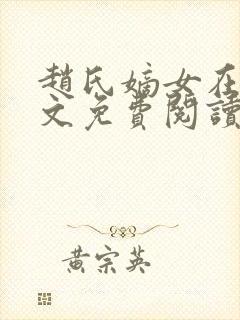 趙氏嫡女在
文免費閱讀
黃宗英